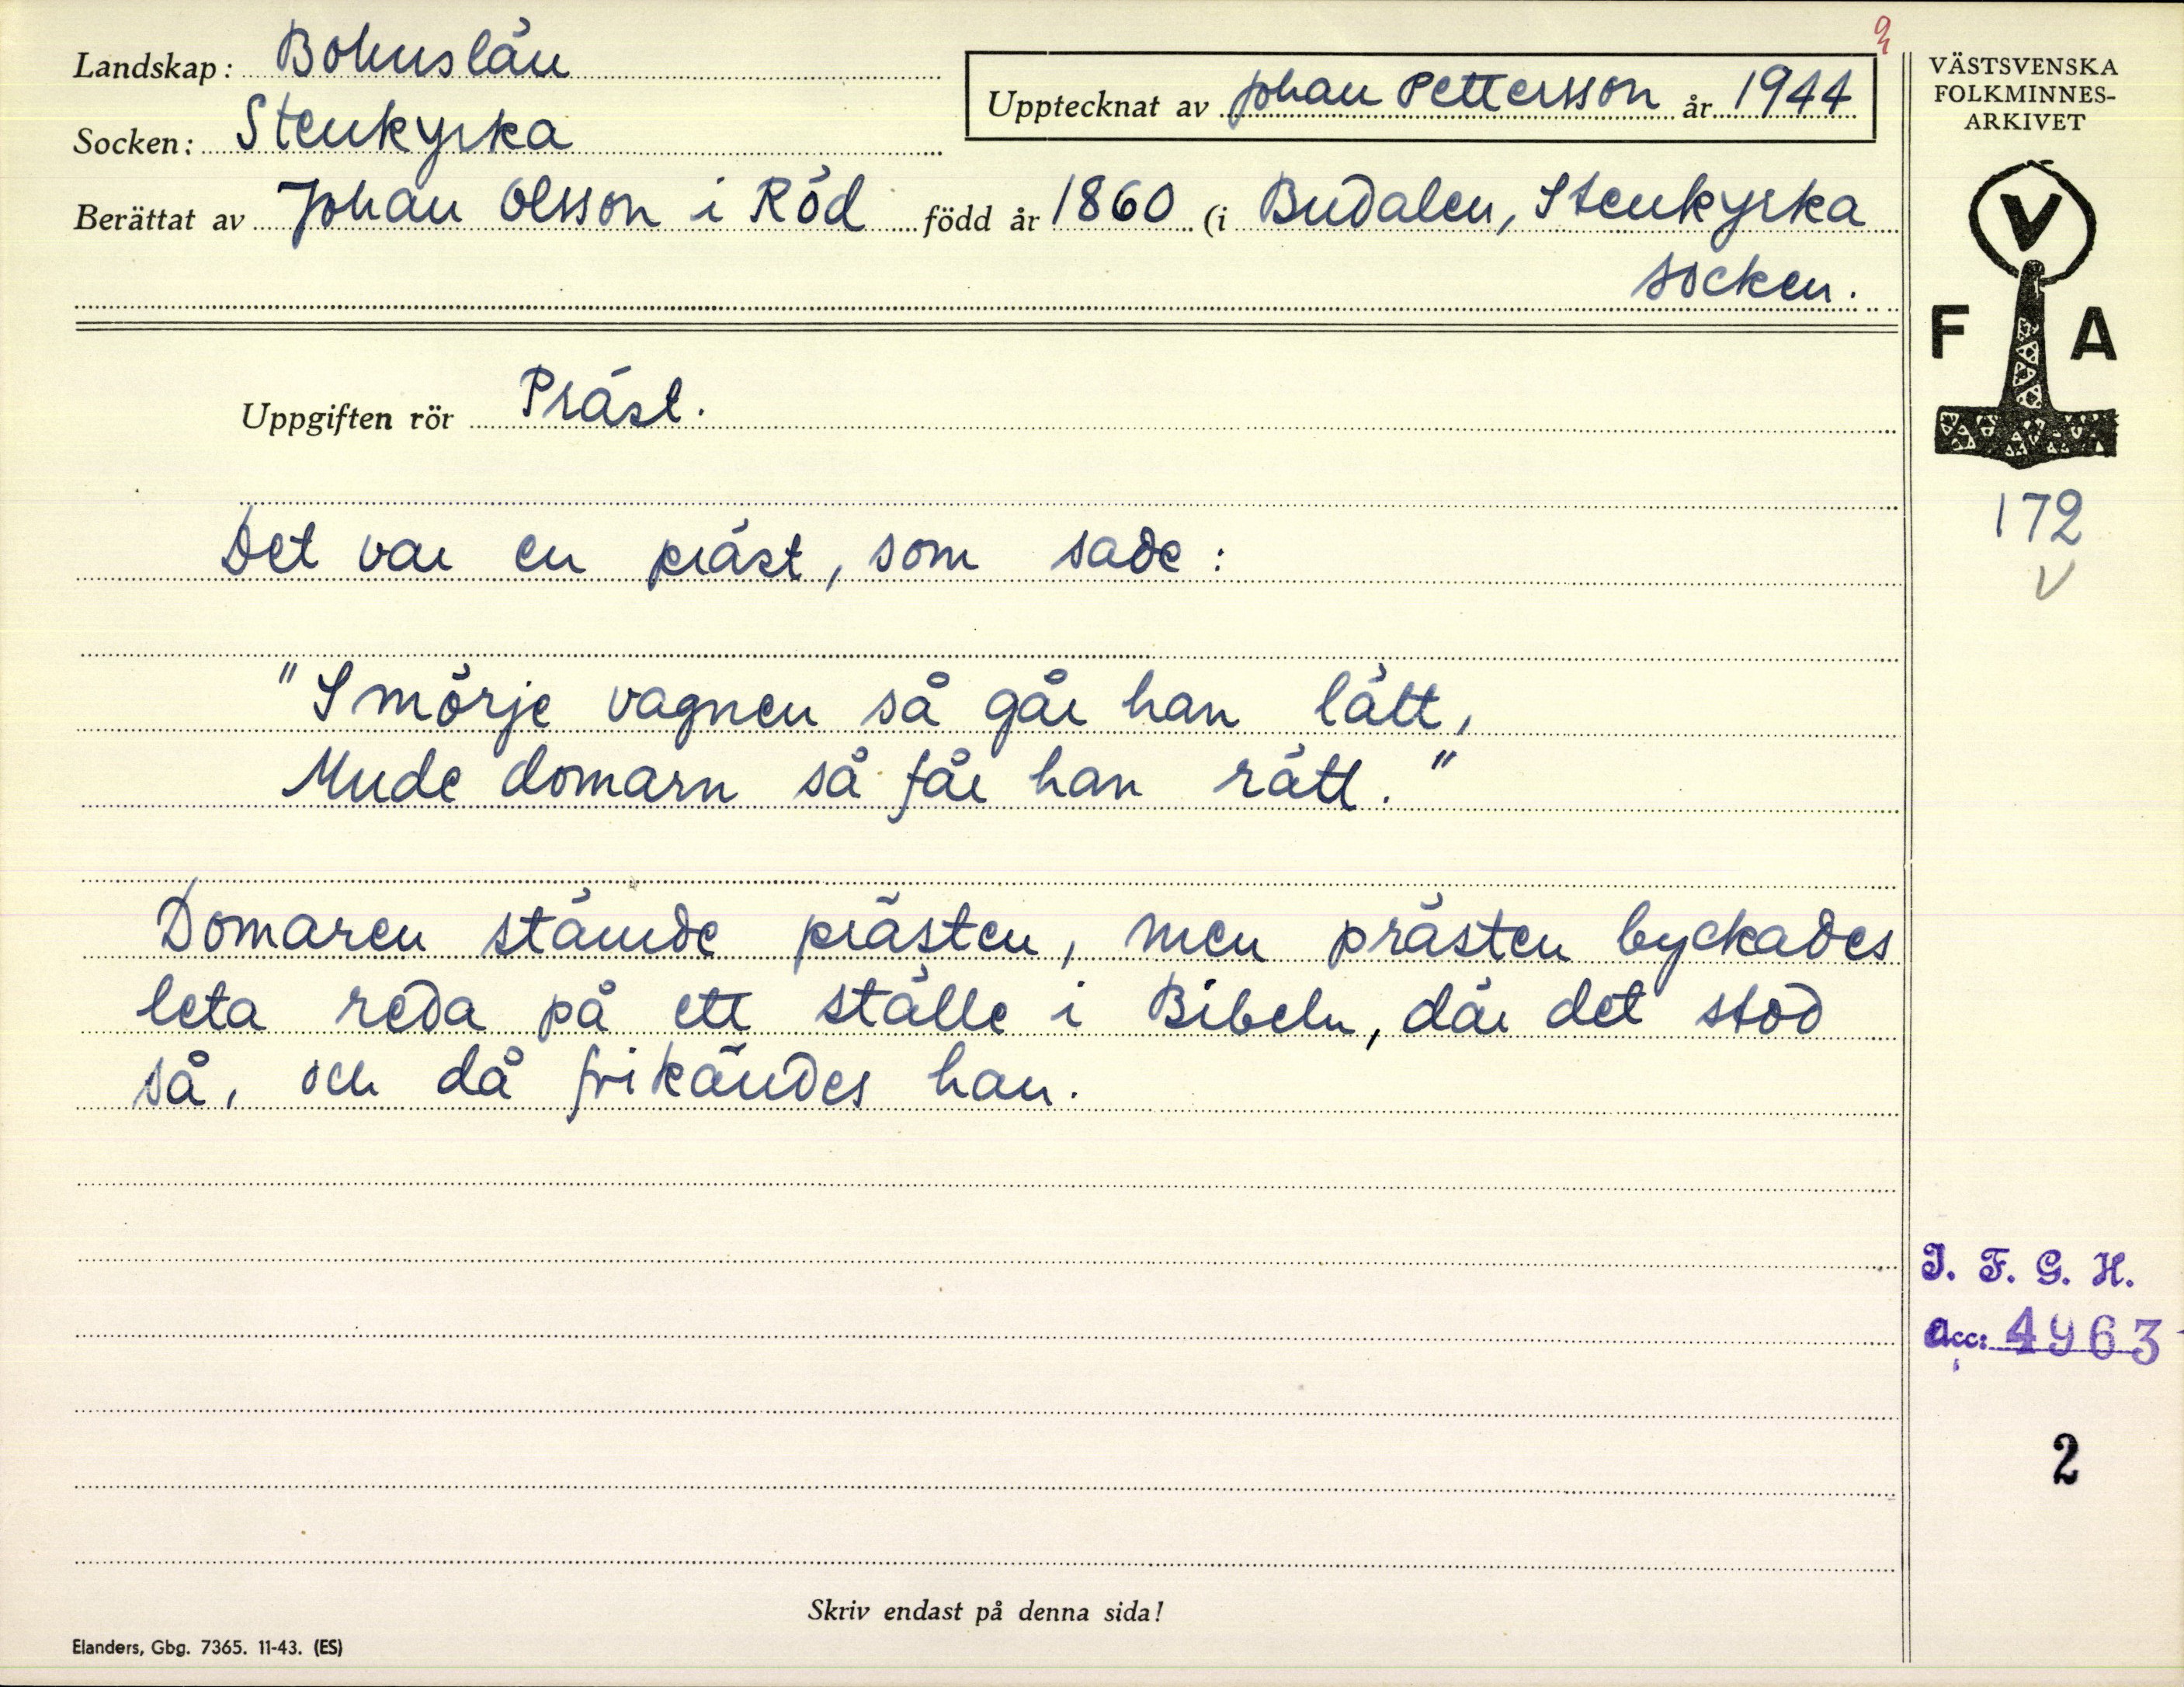 Landskap: Bohuslän
Socken: Stenkyrka
Upptecknat av Johan Pettersson år 1944
Berättat av Johan Olsson i Röd född år 1860 (i Budalen, Stenkyrka
socken.
Uppgiften rör Präst.
Det var en präst, som sade:
"Smörje vagnen så går han lätt,
Mude domarn så får han rätt."
Domaren stämde prästen, men prästen lyckades
leta reda på ett ställe i Bibeln, där det stod
så, och då frikändes han.
Skriv endast på denna sida!
Elanders, Gbg. 7365. 11-43. (ES)
VÄSTSVENSKA
FOLKMINNES-
ARKIVET
V
F A
172
V
I. F. G. H.
Acc: 4963
2